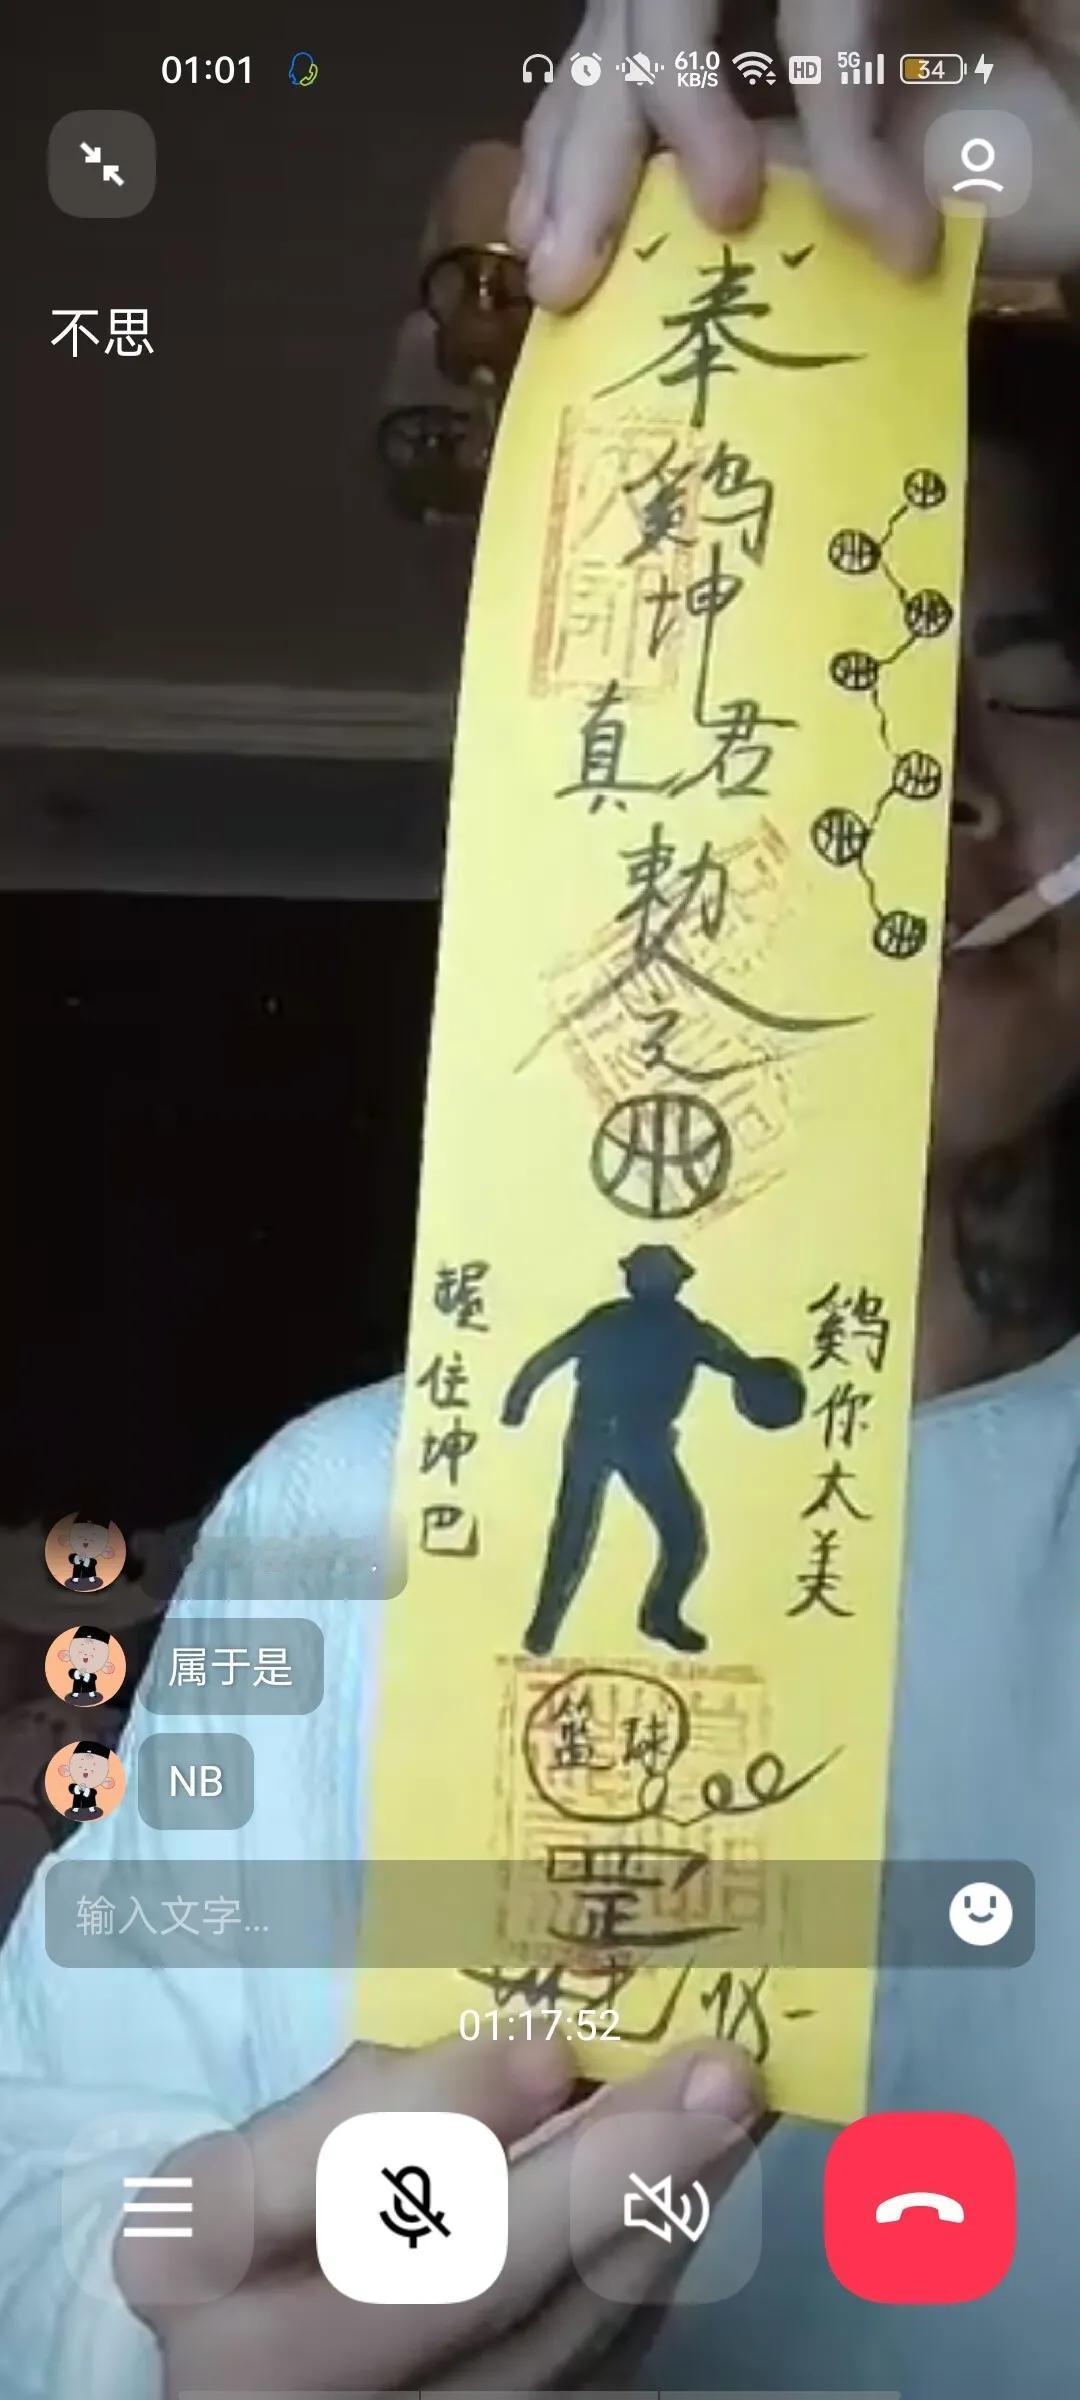 01:01
61.0
KB/S
HD
5G
34
不思
奉
鷄
坤
真君
敕
鷄你太美
住坤巴
籃球
罡
属于是
NB
输入文字...
01:17:52